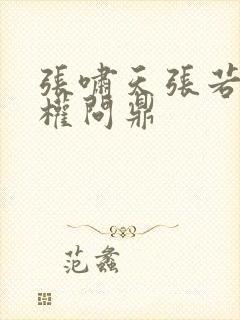 張嘯天張若
權問鼎
范蠡